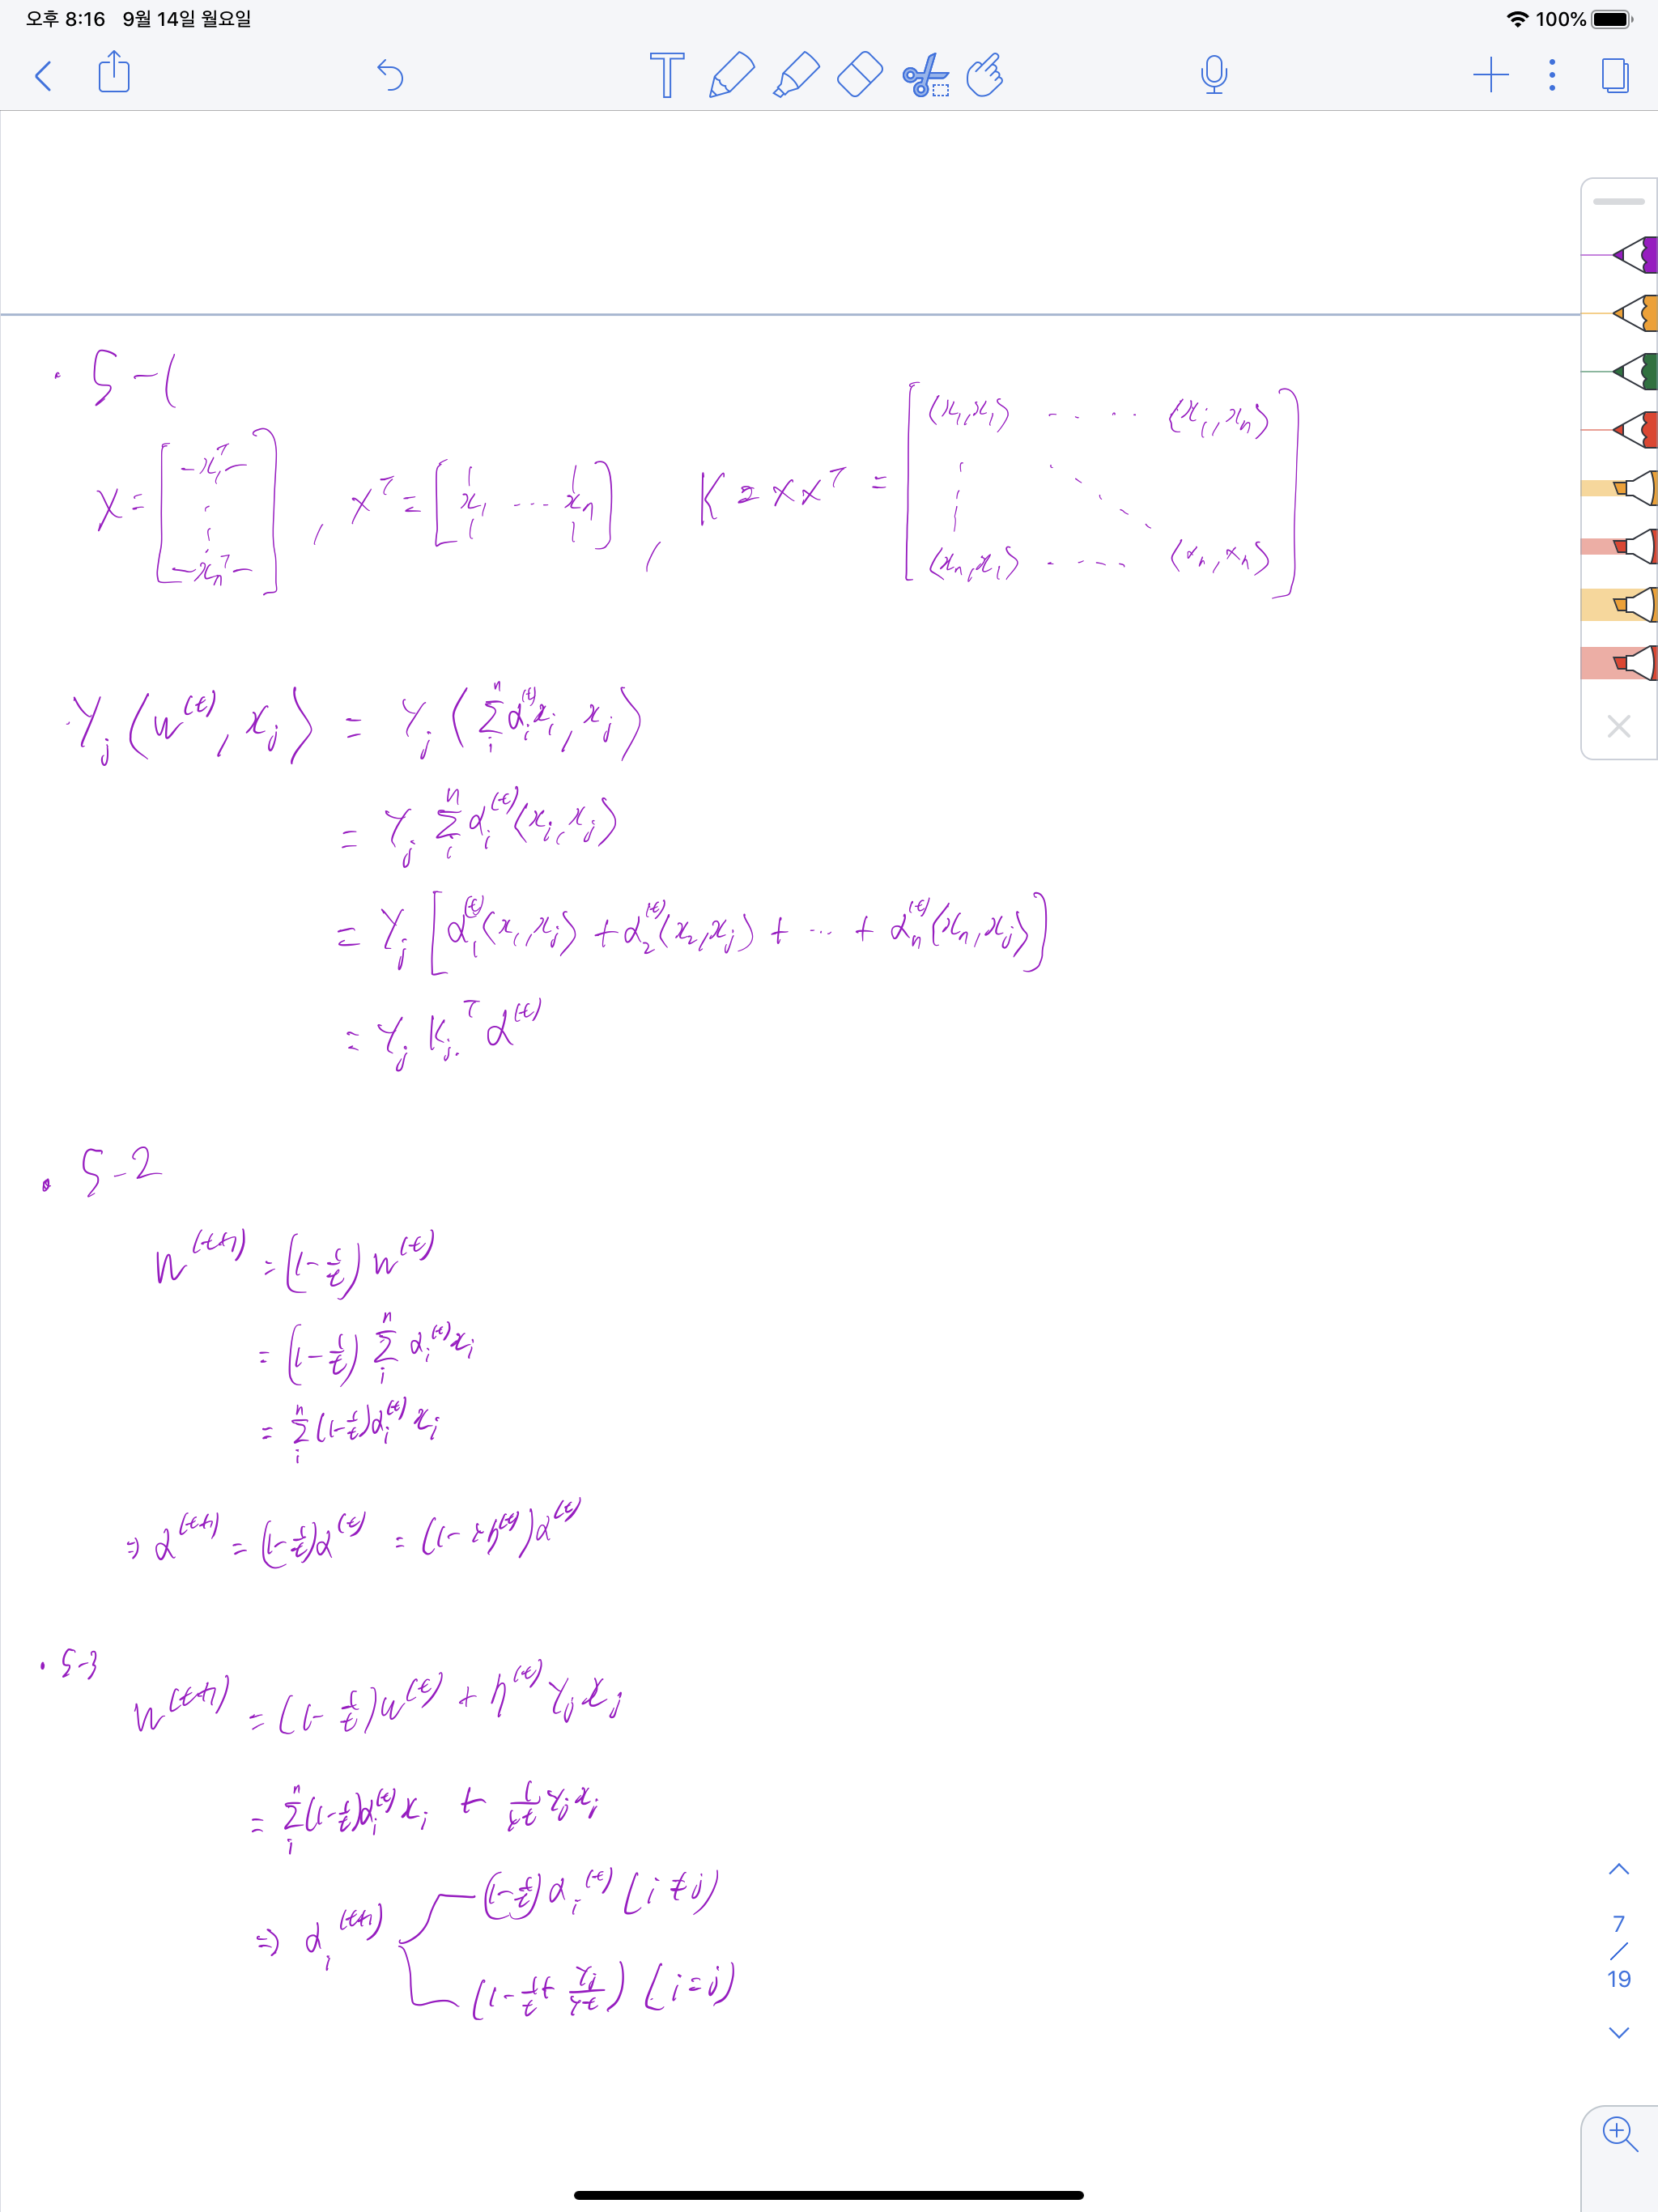 오후 8:16 9월 14일 월요일 100%
· 5-1
X = [ -x₁ᵀ- ⋮ -xₙᵀ- ] , Xᵀ = [ x₁ ··· xₙ ] , K = XXᵀ = [ ⟨x₁,x₁⟩ ···· ⟨x₁,xₙ⟩ ⋮ ⋱ ⟨xₙ,x₁⟩ ···· ⟨xₙ,xₙ⟩ ]
· Y_j ⟨w^(t), x_j⟩ = Y_j ⟨ Σ_i^n α_i^(t) x_i, x_j ⟩
= Y_j Σ_i^n α_i^(t) ⟨x_i, x_j⟩
= Y_j [ α₁^(t) ⟨x₁,x_j⟩ + α₂^(t) ⟨x₂,x_j⟩ + ··· + α_n^(t) ⟨x_n,x_j⟩ ]
= Y_j K_j.ᵀ α^(t)
· 5-2
w^(t+1) = (1 - 1/t) w^(t)
= (1 - 1/t) Σ_i^n α_i^(t) x_i
= Σ_i^n (1 - 1/t) α_i^(t) x_i
⇒ α^(t+1) = (1 - 1/t) α^(t) = (1 - λη^(t)) α^(t)
· 5-3
w^(t+1) = (1 - 1/t) w^(t) + η^(t) Y_j x_j
= Σ_i^n (1 - 1/t) α_i^(t) x_i + 1/λt Y_j x_j
⇒ α_i^(t+1)
(1 - 1/t) α_i^(t) (i ≠ j)
(1 - 1/t + Y_j/λt) (i = j)
7
/
19